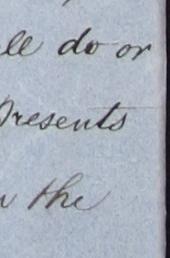 all do or
Presents
the